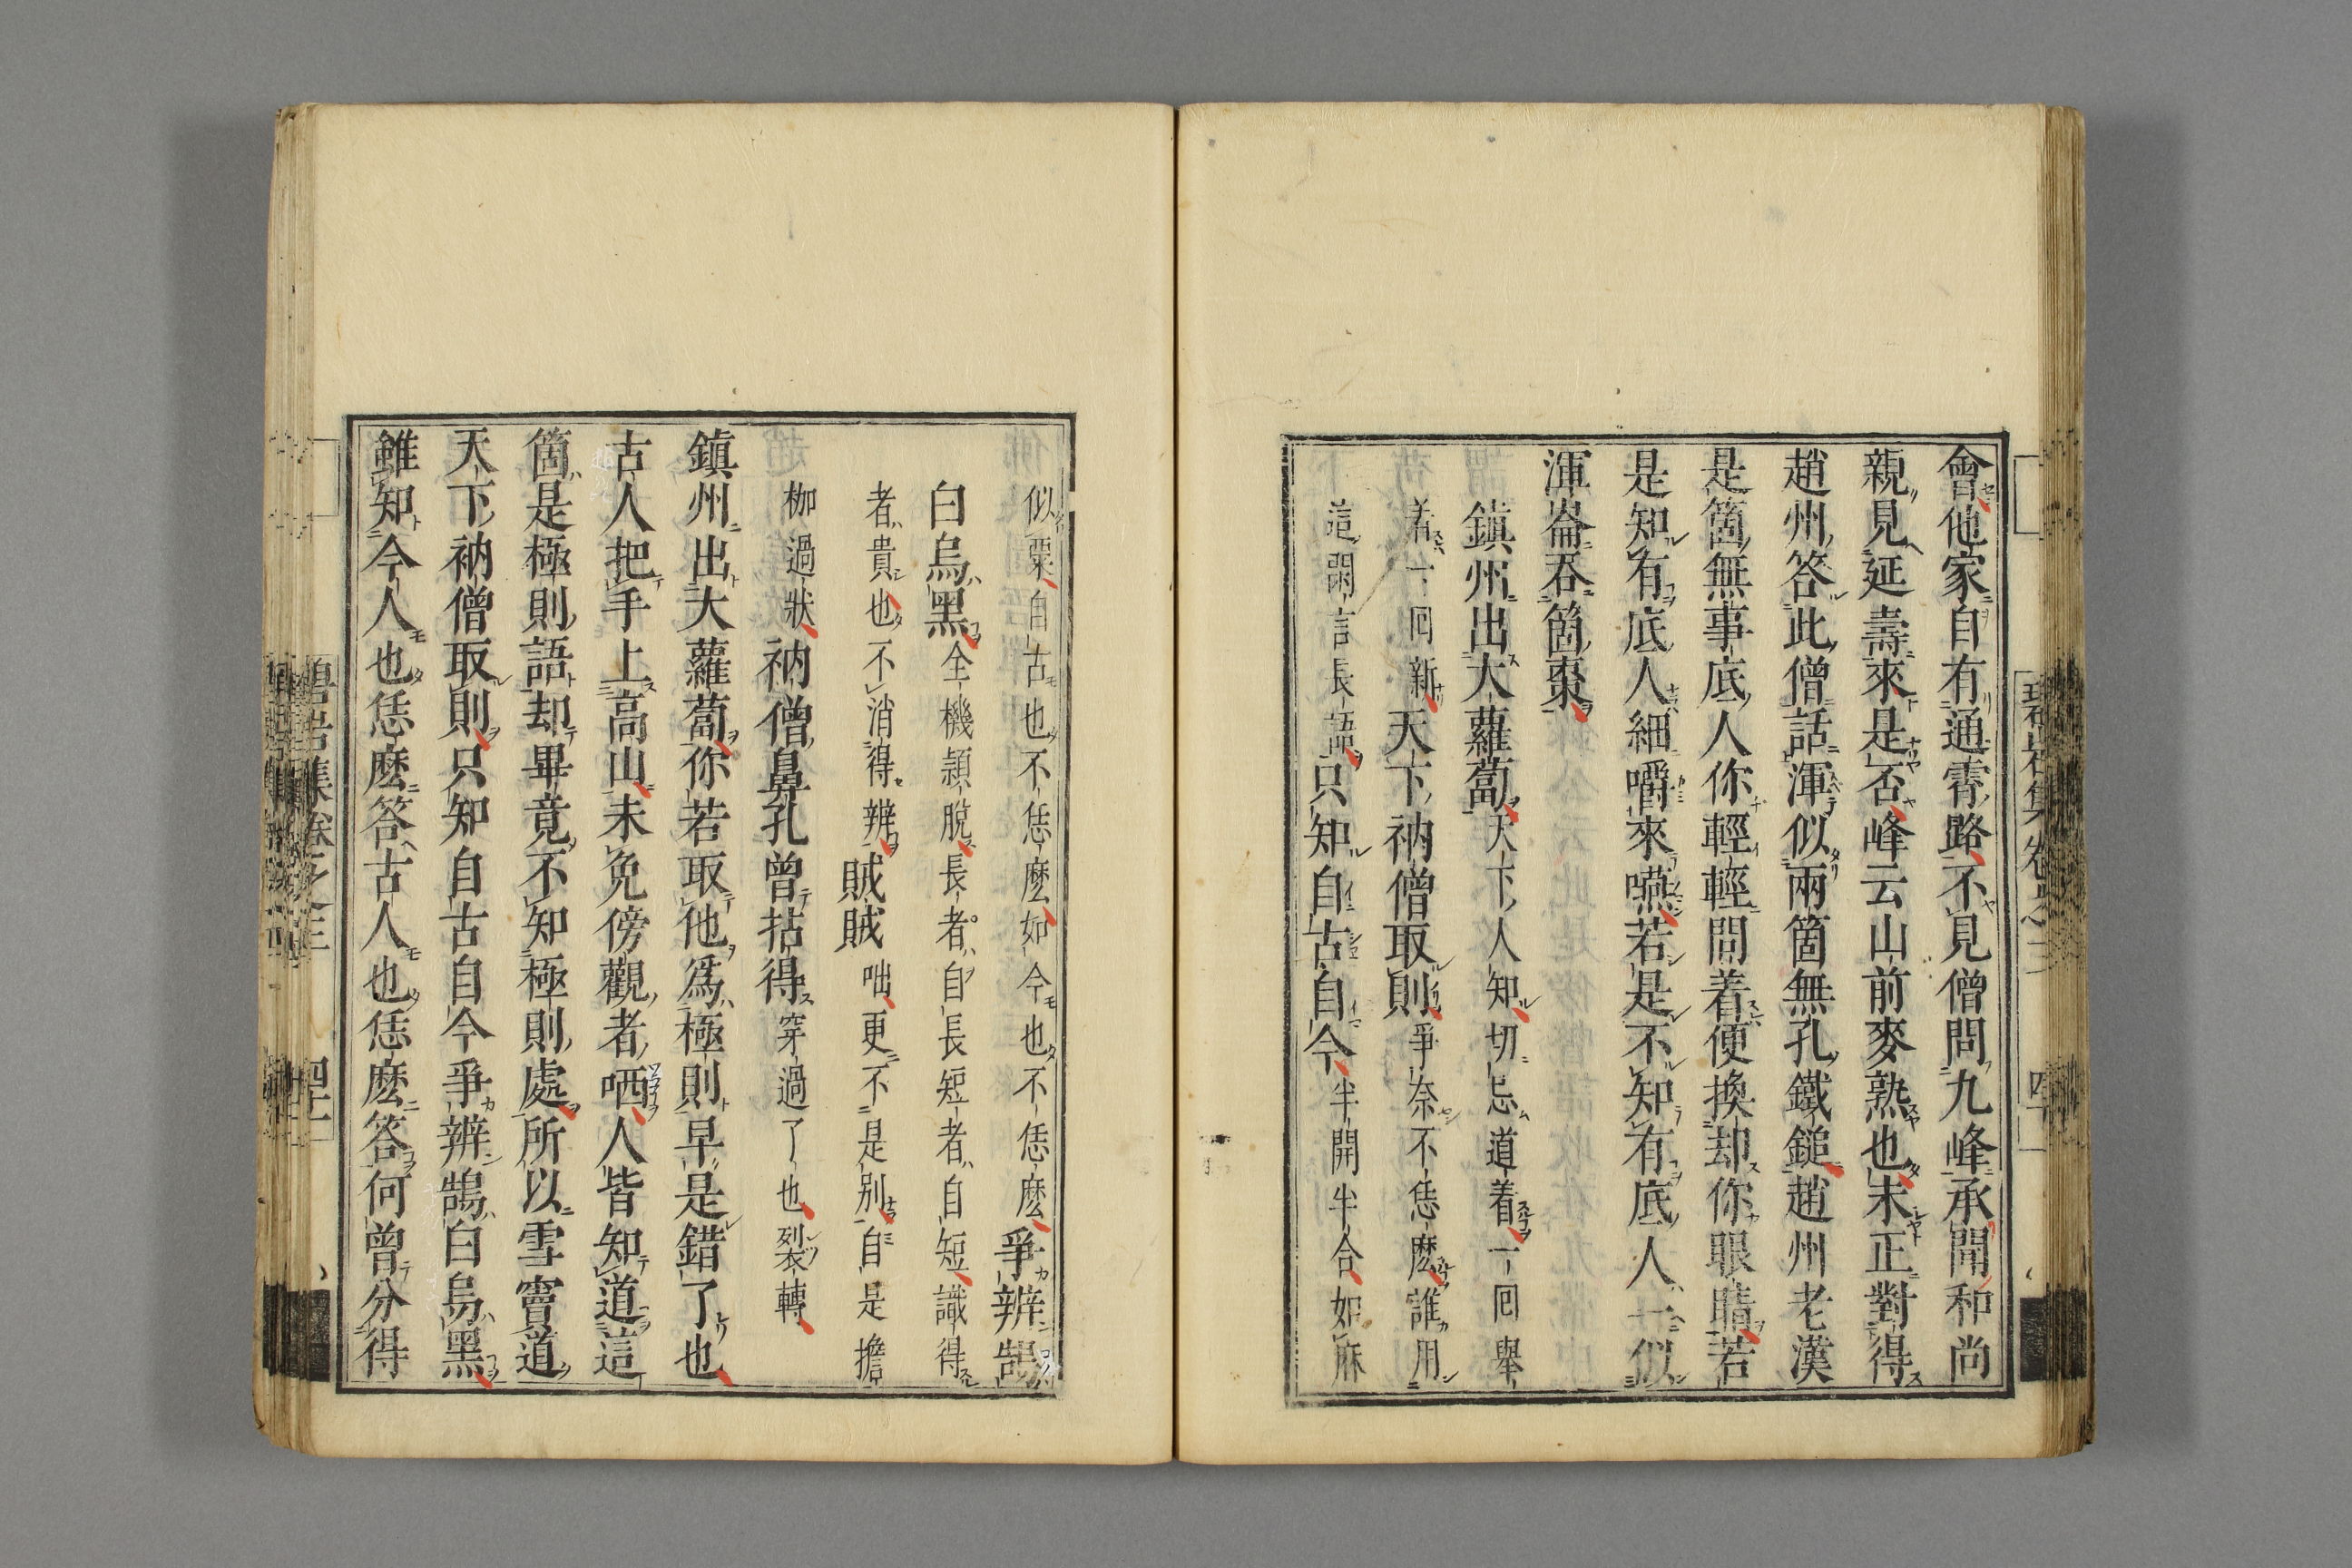 會他家自有通霄路不見僧問九峰承聞和尚
親見延壽來是否峰云山前麥熟也未正對得
趙州答此僧話渾似兩箇無孔鐵鎚趙州老漢
是箇無事底人你輕輕問着便換却你眼睛若
是知有底人細嚼來嚥若是不知有底人一似
渾崙吞箇棗
鎮州出大蘿蔔天下人知切忌道着一回舉
着一回新天下衲僧取則爭奈不恁麽誰用
這閑言長語只知自古自今半開半合如麻
似粟自古也不恁麽如今也不恁麽爭辨鵠
白烏黑全機頴脫長者自長短者自短識得
者貴也不消得辨賊賊咄更不是別自是擔
枷過狀衲僧鼻孔曾拈得穿過了也裂轉
鎮州出大蘿蔔你若取他爲極則早是錯了也
古人把手上高山未免傍觀者哂人皆知道這
箇是極則語却畢竟不知極則處所以雪竇道
天下衲僧取則只知自古自今爭辨鵠白烏黑
雖知今人也恁麽答古人也恁麽答何曾分得
碧岩集卷之三
四十一